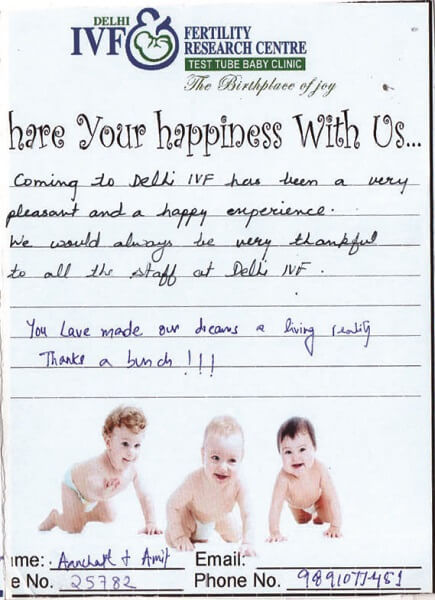 DELHI
IVF &
FERTILITY
RESEARCH CENTRE
TEST TUBE BABY CLINIC
The Birthplace of joy
hare Your happiness With Us...
Coming to Delhi IVF has been a very
pleasant and a happy experience.
We would always be very thankful
to all the staff at Delhi IVF.
You have made our dreams a living reality
Thanks a bunch!!!
me: & Amit Email:
e No. 25782 Phone No.